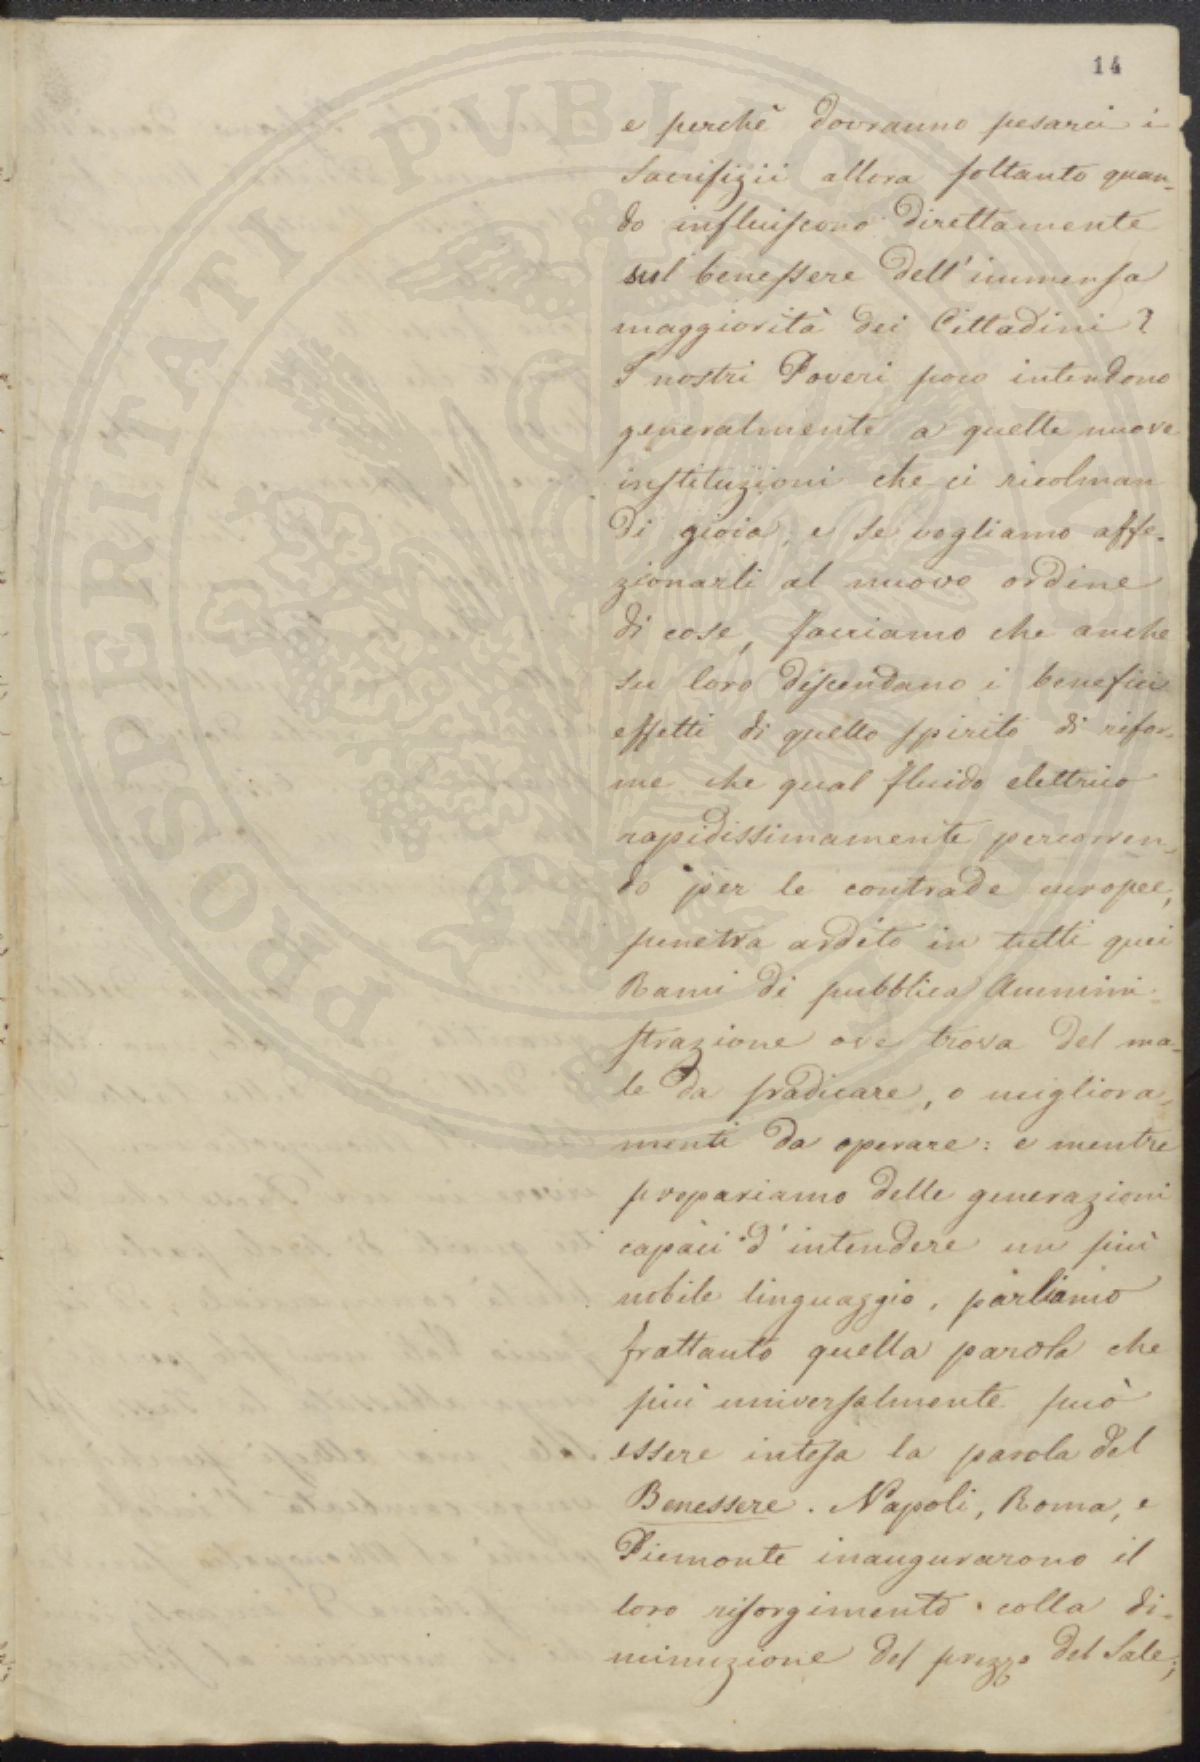 14
e perchè dovranno pesarci i
Sacrifizii allora soltanto quan-
do influiscono direttamente
sul benessere dell'immensa
maggiorità dei Cittadini?
I nostri Poveri poco intendono
generalmente a quelle nuove
instituzioni che ci ricolman
di gioia, e se vogliamo affe-
zionarli al nuovo ordine
di cose, facciamo che anche
su loro discendano i benefici
effetti di quello spirito di rifor-
me che qual fluido elettrico
rapidissimamente percorren-
do per le contrade europee,
penetra ardito in tutti quei
Rami di pubblica Ammini-
strazione ove trova del ma-
le da sradicare, o migliora-
menti da operare: e mentre
prepariamo delle generazioni
capaci d'intendere un più
nobile linguaggio, parliamo
frattanto quella parola che
più universalmente può
essere intesa la parola del
Benessere. Napoli, Roma, e
Piemonte inaugurarono il
loro risorgimento colla di-
minuzione del prezzo del Sale;
PROSPERITATI PVBLICAE